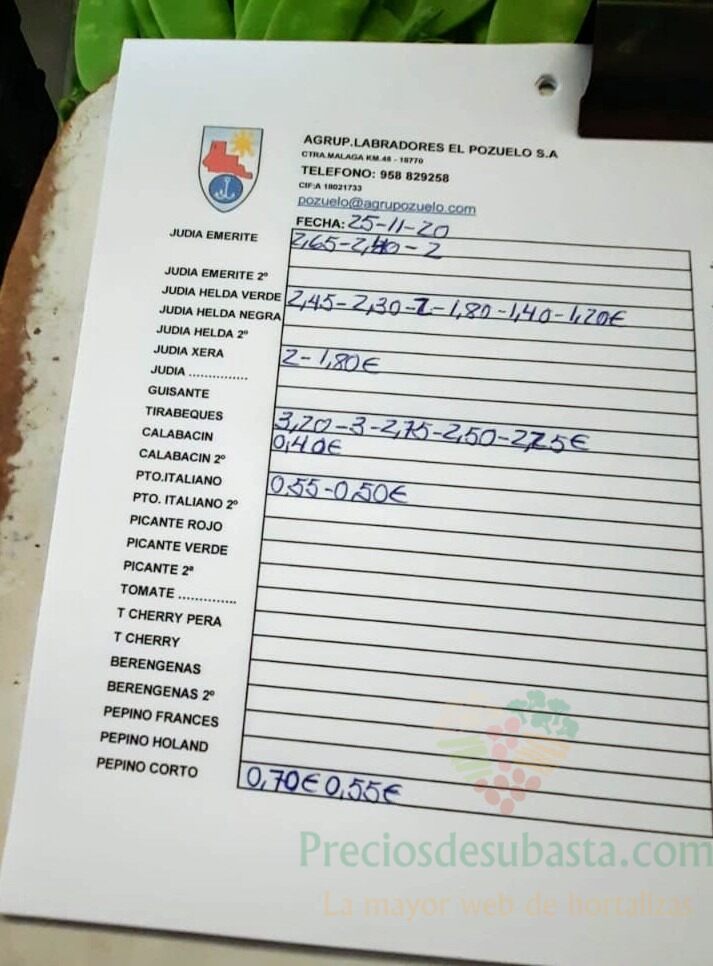 AGRUP.LABRADORES EL POZUELO S.A
CTRA.MALAGA KM.48 - 18770
TELEFONO: 958 829258
CIF:A 18021733
pozuelo@agrupozuelo.com
FECHA: 25-11-20
JUDIA EMERITE 2,65-2,40-2
JUDIA EMERITE 2º
JUDIA HELDA VERDE 2,45-2,30-2-1,80-1,40-1,20€
JUDIA HELDA NEGRA
JUDIA HELDA 2º
JUDIA XERA 2-1,80€
JUDIA ...............
GUISANTE
TIRABEQUES 3,20-3-2,75-2,50-2,25€
CALABACIN 0,40€
CALABACIN 2º
PTO.ITALIANO 0,55-0,50€
PTO. ITALIANO 2º
PICANTE ROJO
PICANTE VERDE
PICANTE 2ª
TOMATE ..............
T CHERRY PERA
T CHERRY
BERENGENAS
BERENGENAS 2º
PEPINO FRANCES
PEPINO HOLAND
PEPINO CORTO 0,70€ 0,55€
Preciosdesubasta.com
La mayor web de hortalizas